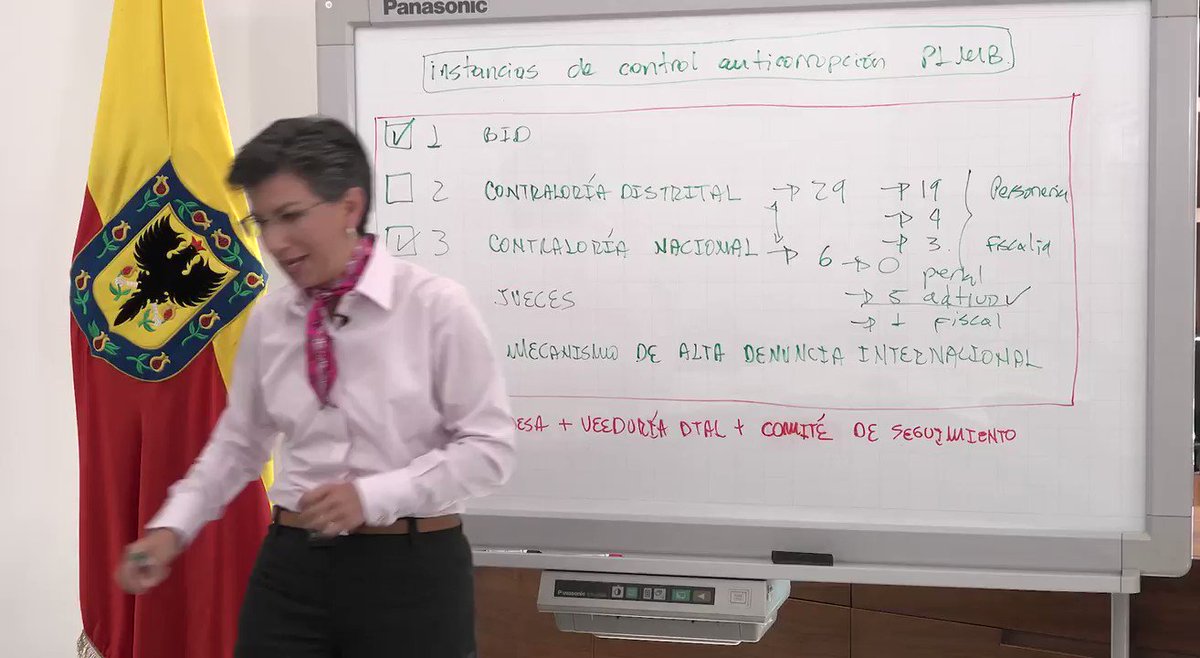 Panasonic
instancias de control anticorrupción PLMB
✓ 1 BID
2 CONTRALORÍA DISTRITAL → 29 → 19 Personería
→ 4
→ 3. fiscalía
✓ 3 CONTRALORÍA NACIONAL → 6 → 0 penal
JUECES → 5 adtivo ✓
→ 1 fiscal
MECANISMO DE ALTA DENUNCIA INTERNACIONAL
+ VEEDURÍA DTAL + COMITÉ DE SEGUIMIENTO
Panasonic